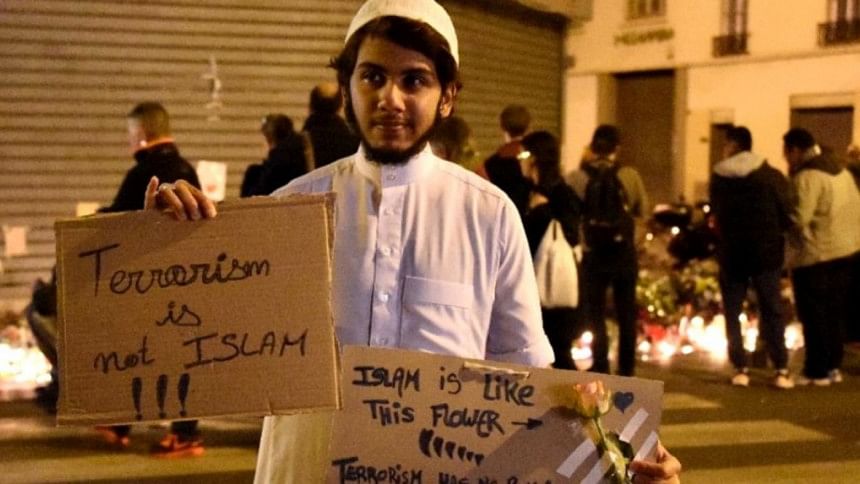 Terrorism
is
not ISLAM
!!!
ISLAM is Like
This FLOWER →
Terrorism has no